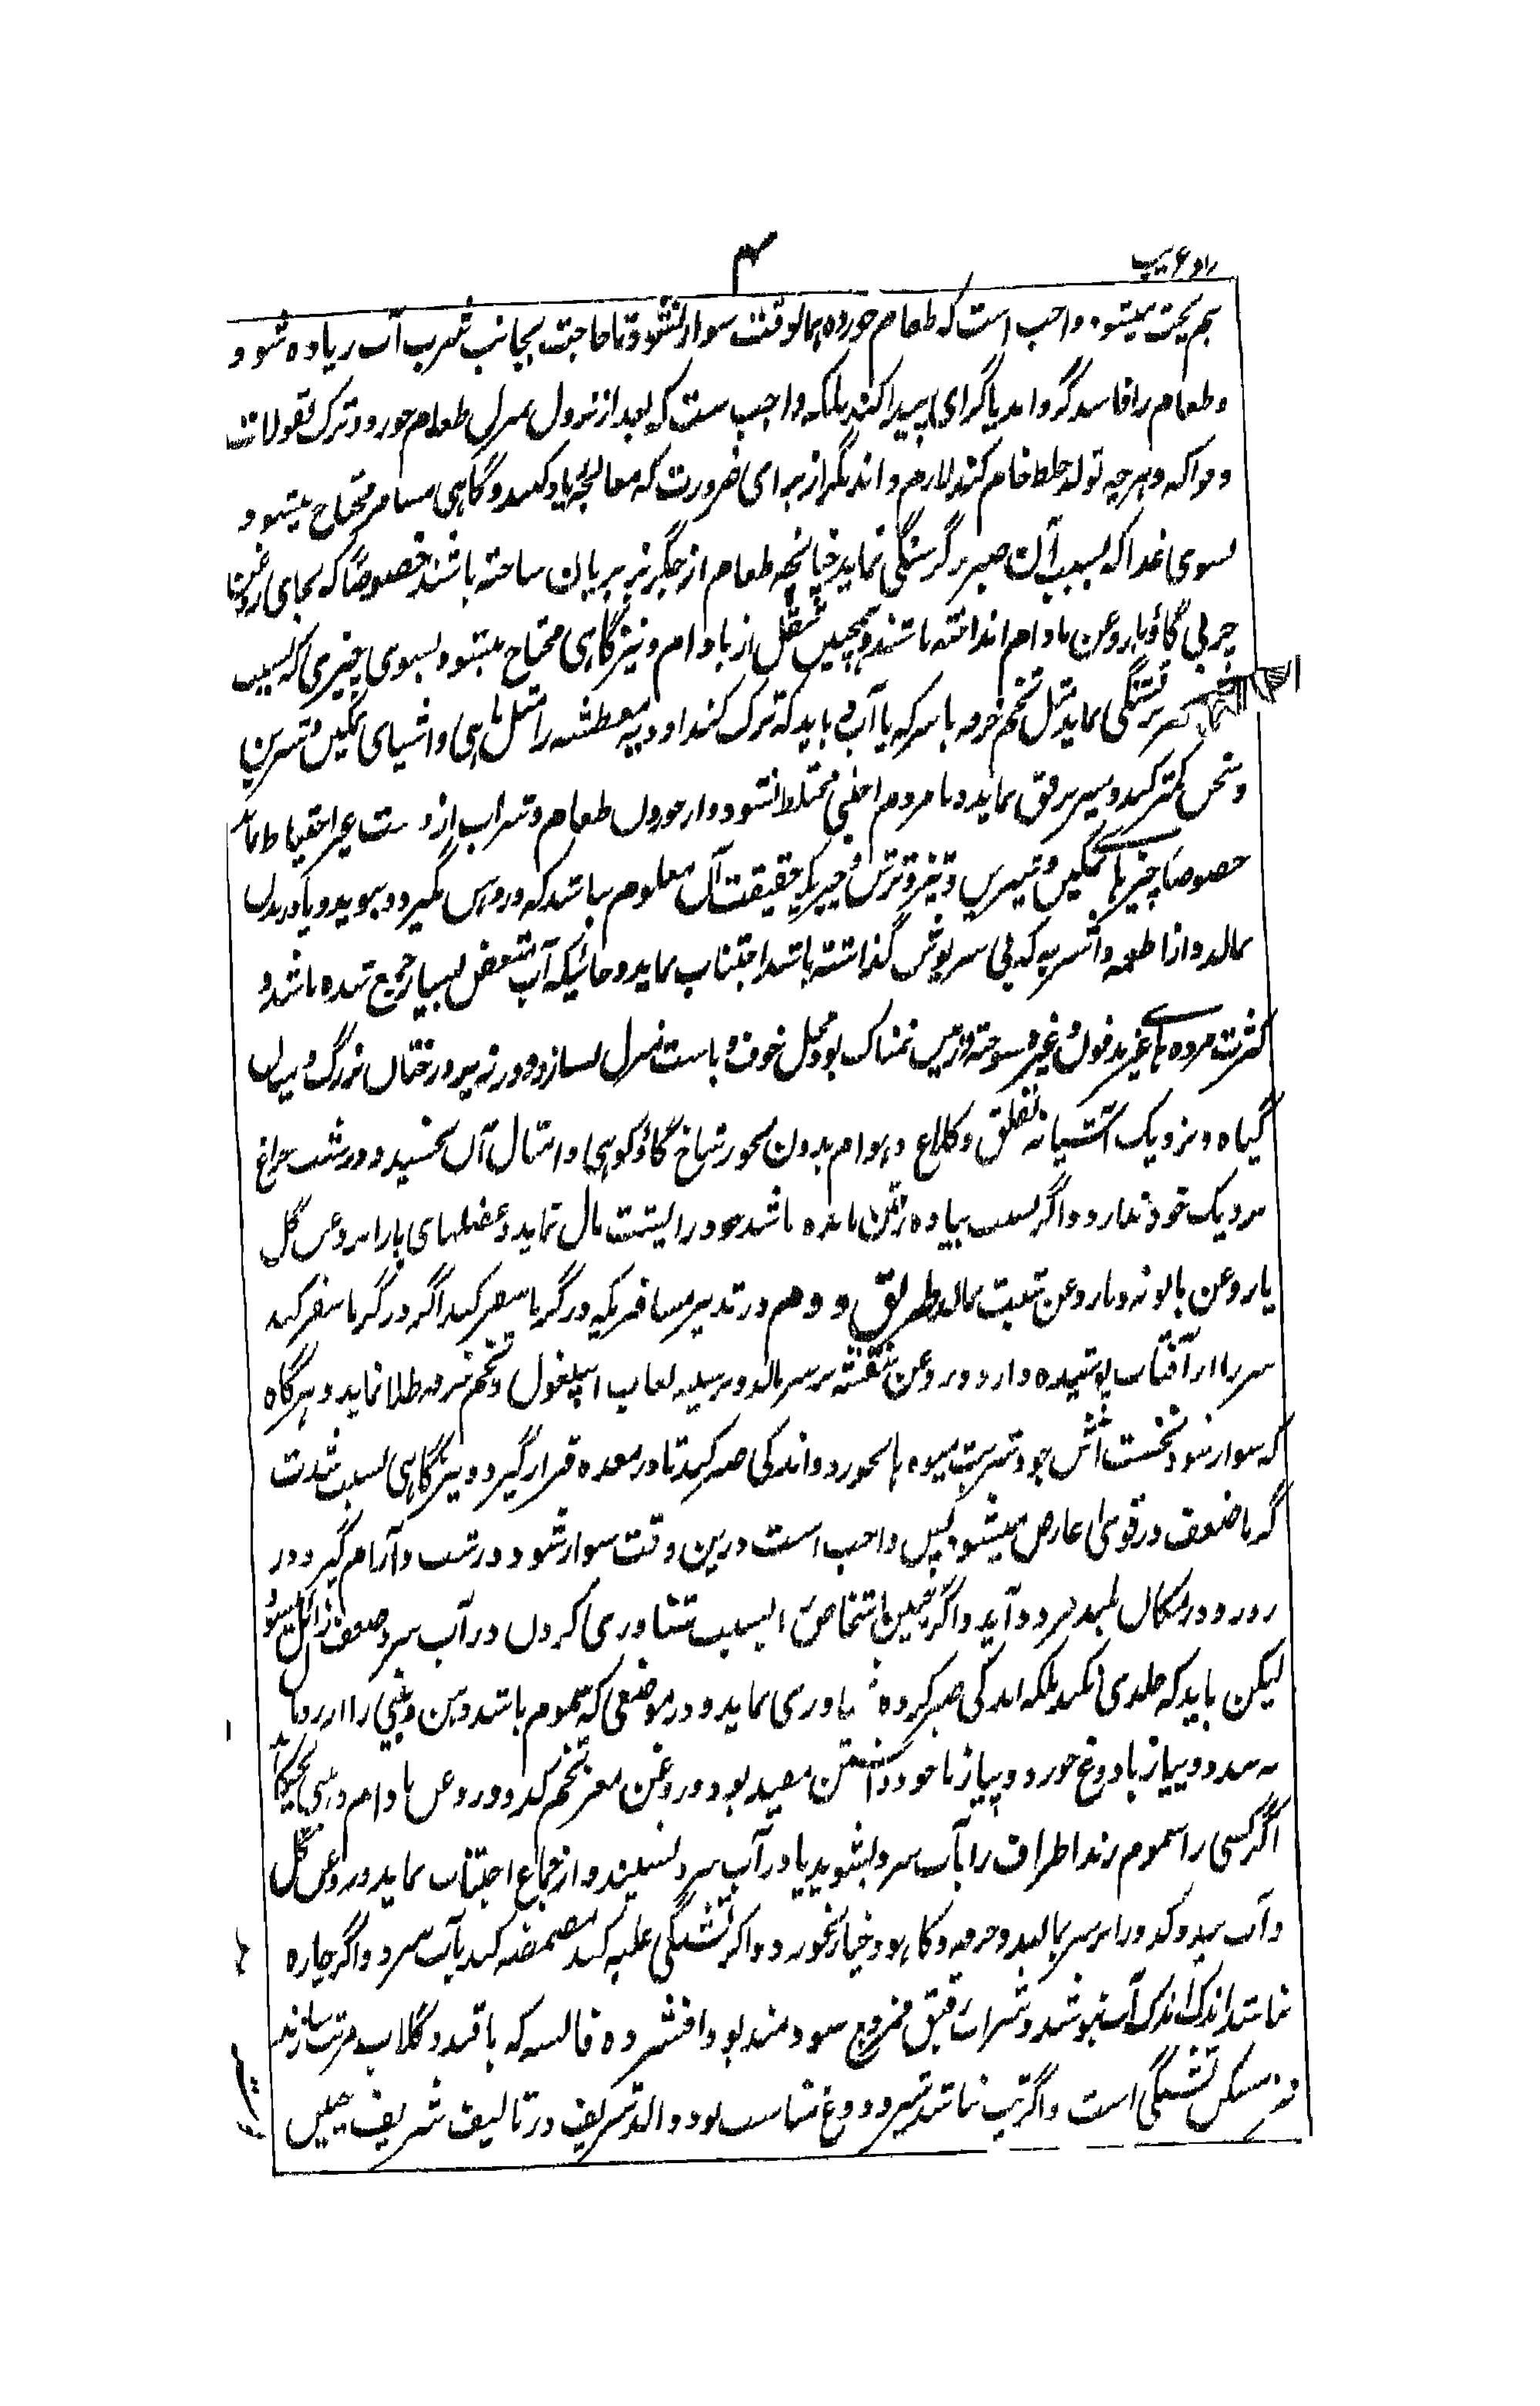 زاد غریب
۴
هم پخت میشود واجب است که طعام خورده همانوقت سوار نشود تا حاجت بجانب شرب آب زیاده شود و
و طعام را فاسد گرداند یا گرانی پیدا کند بلکه واجب ست که بعد از نزول منزل طعام خورد و ترک بقولات
و فواکه و هرچه تولد خلط خام کند لازم داند مگر از برای ضرورت که معالجه یاد کنند و گاهی مسافر محتاج میشود
بسوی غذا که بسبب آن صبر بر گرسنگی نماید چنانچه طعام از جگر بز بریان ساخته باشند خصوصًا که بجای روغن
چربی گاو یا روغن بادام انداخته باشند و همچنین نقل از بادام و نیز گاهی محتاج میشود بسوی چیزی که بسبب
صبر بر تشنگی نماید مثل تخم خرفه با سرکه یا آب و باید که ترک کند اودیه معطشه را مثل ماهی و اشیای نمکین و شیرین
و سخن کمتر کند و سیر برفق نماید و با مردم اجنبی مختلط نشود و از خوردن طعام و شراب از دست غیر احتیاط نماید
خصوصا چیزهای نمکین و شیرین و تیز و ترش و چیزیکه حقیقت آن معلوم نباشد که در دهن گیرد و ببوید و یا در بدن
بمالد و از اطعمه و اشربه که بی سرپوش گذاشته باشد اجتناب نماید و جائیکه آب متعفن بسیار جمع شده باشد و
کثرت مرده های غیر مدفون و غیر سوخته و زمین نمناک بود و محل خوف وباست منزل نسازد و در زیر درختان بزرگ و میان
گیاه و نزدیک آشیانه لقلق و کلاغ و هوام بدون بخور شاخ گاو کوهی و امثال آن نخسپد و در شب چراغ
نزدیک خود ندارد و اگر بسبب پیاده رفتن مانده باشد خود را پشت مال نماید و عضلهای پا را بروغن گل
یا روغن بابونه و یا روغن شبت بمالد طریق دوهم در تدبیر مسافریکه در گرما سفر کند اگر در گرما سفر کند
سر را از آفتاب پوشیده دارد و روغن بنفشه بر سر مالد و بر سینه لعاب اسپغول و تخم خرفه طلا نماید و هرگاه
که سوار شود نخست آش جو و شربت میوه ها بخورد و اندکی صبر کند تا در معده قرار گیرد و نیز گاهی بسبب شدت
گرما ضعف در قوی عارض میشود پس واجب است درین وقت سوار شود در شب و آرام گیرد در
روز و در مکان بلند فرود آید و اگر چنین اشخاص را بسبب شناوری کردن در آب سرد ضعف زائل میشود
لیکن باید که جلدی نکند بلکه اندکی صبر کرده شناوری نماید و در موضعی که سموم باشد دهن و بینی را از رومال
به بندد و پیاز با دوغ خورد و پیاز با خود داشتن مفید بود و روغن مغز تخم کدو و روغن بادام در بینی چکاند
اگر کسی را سموم زند اطراف را بآب سرد بشوید یا در آب سرد نشیند و از جماع اجتناب نماید و روغن گل
و آب بید و کدو را بر سر بمالد و خرفه و کاهو و خیار بخورد و اگر تشنگی غلبه کند مضمضه کند بآب سرد و اگر چاره
نباشد اندک اندک آب بنوشد و شراب رقیق ممزوج سودمند بود و افشرده فالسه که با قند و گلاب مرتب سازند
مسکن تشنگی است و اگر تب نباشد شیر و دوغ مناسب بود و والد شریف در تالیف شریف چنین